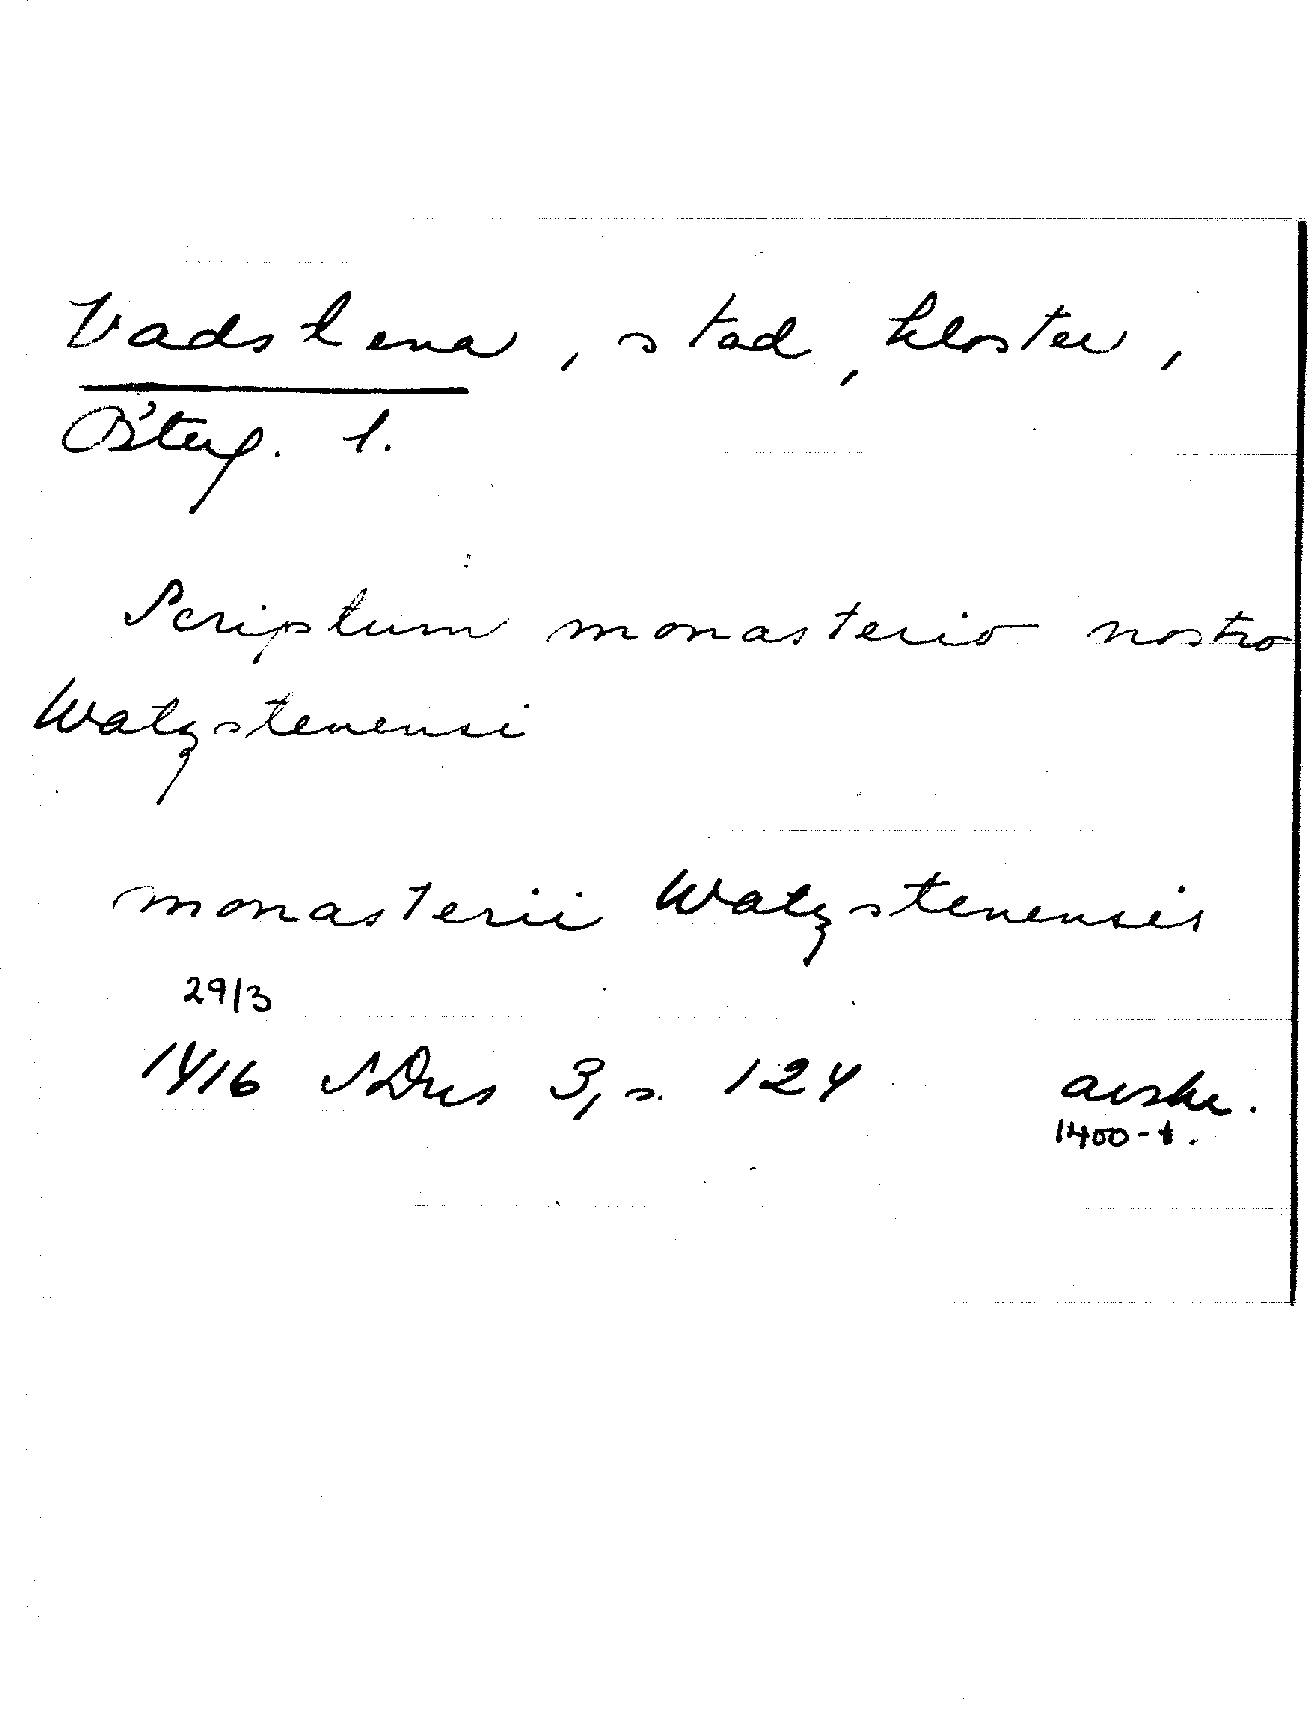 Vadstena, stad, kloster,
Österg. l.
Scriptum monasterio nostro
Watzstenensi
monasterii Watzstenensis
29/3
1416 SDns 3, s. 124 avskr.
1400-t.